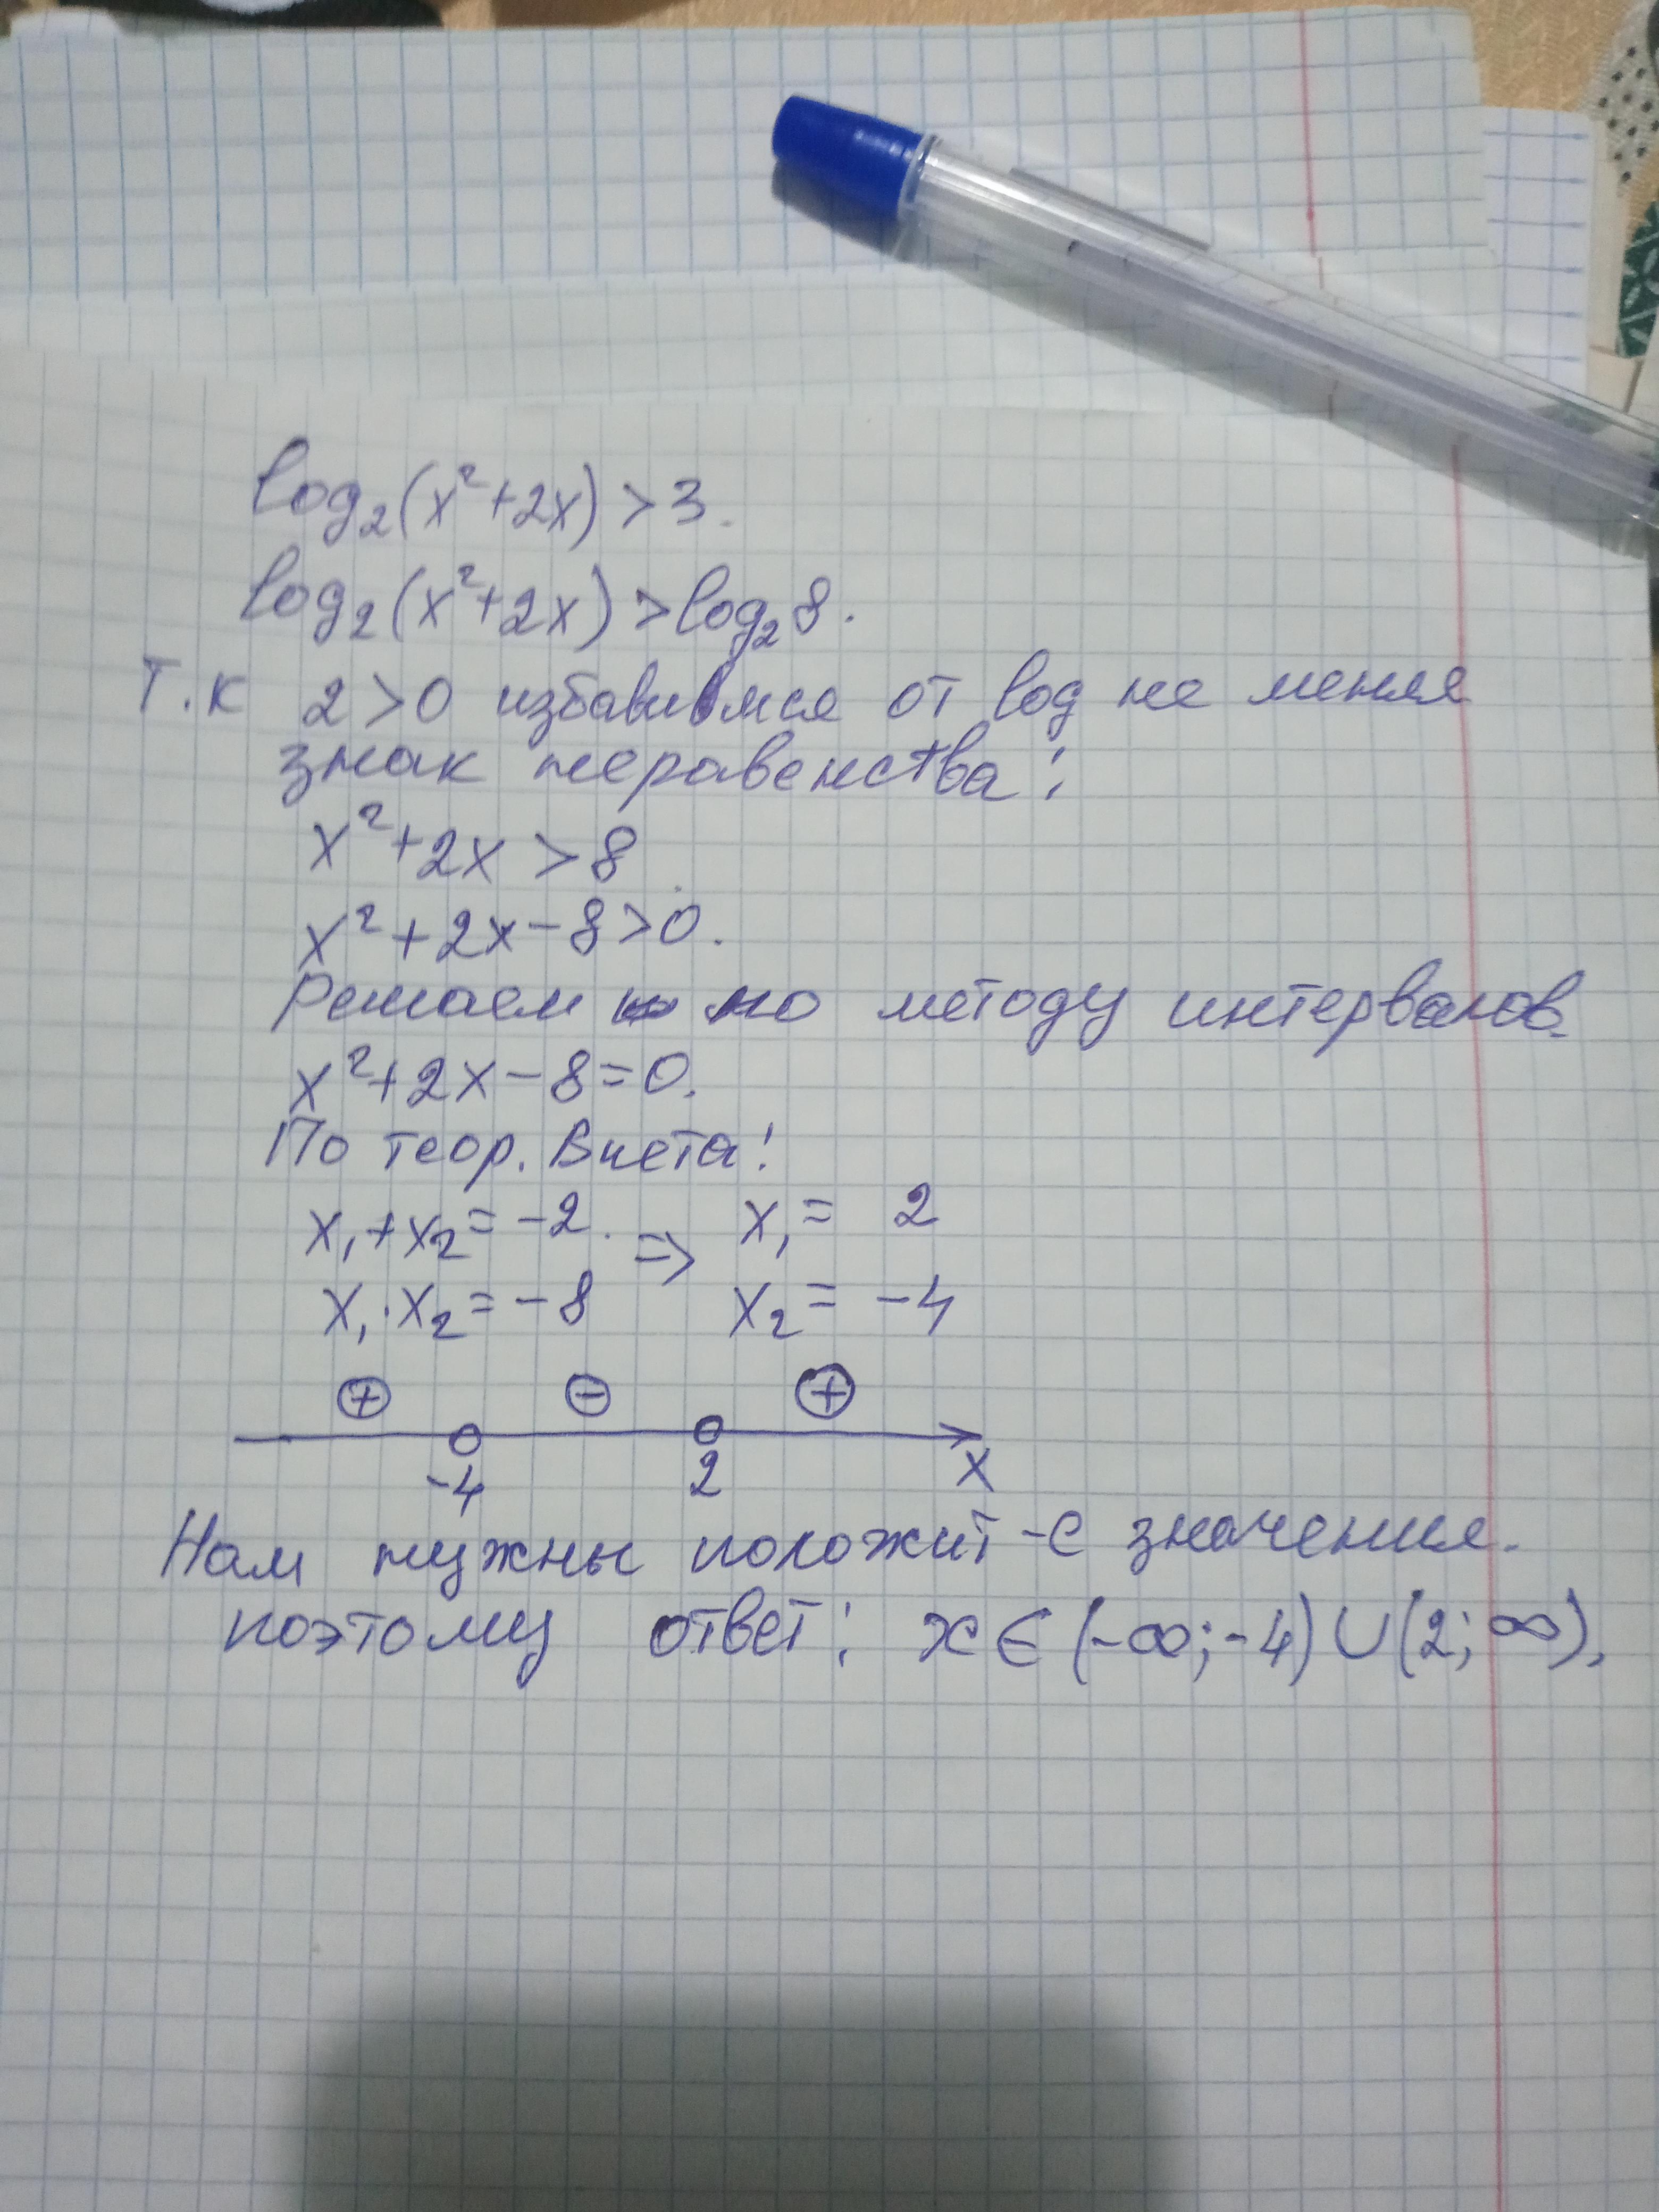 log₂(x²+2x)>3.
log₂(x²+2x)>log₂8.
Т.к 2>0 избавимся от log не меняя
знак неравенства:
x²+2x>8
x²+2x-8>0.
Решаем по методу интервалов.
x²+2x-8=0.
По теор. Виета:
x₁+x₂=-2. => x₁= 2
x₁·x₂=-8 x₂= -4
+ - +
-4 2 x
Нам нужны положит-е значения.
поэтому ответ: x∈(-∞;-4)∪(2;∞).